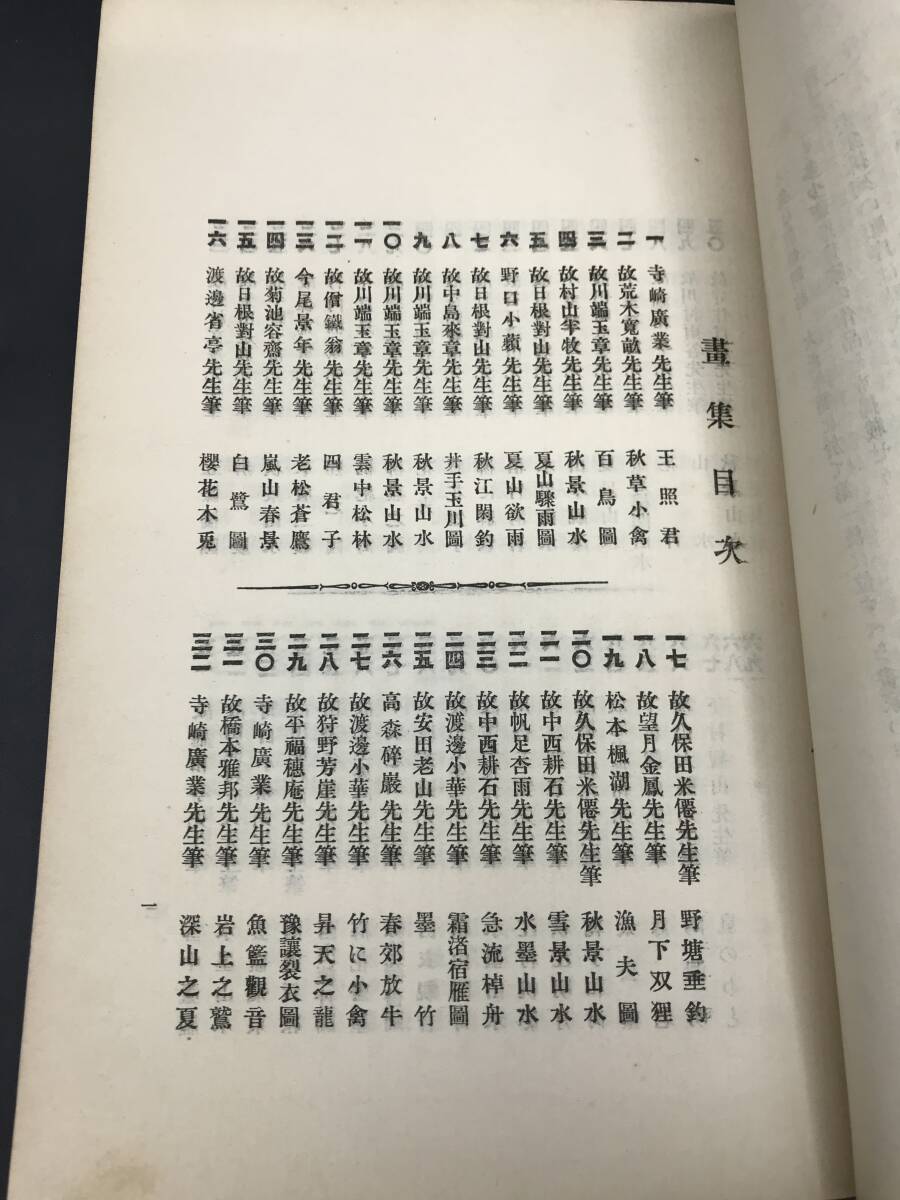 畫集目次
一 寺崎廣業先生筆 王照君
二 故荒木寬畝先生筆 秋草小禽
三 故川端玉章先生筆 百鳥圖
四 故村山半牧先生筆 秋景山水
五 故日根對山先生筆 夏山驟雨圖
六 野口小蘋先生筆 夏山欲雨
七 故日根對山先生筆 秋江閑釣
八 故中島來章先生筆 井手玉川圖
九 故川端玉章先生筆 秋景山水
一〇 故川端玉章先生筆 秋景山水
一一 故川端玉章先生筆 雲中松林
一二 故僧鐵翁先生筆 四君子
一三 今尾景年先生筆 老松蒼鷹
一四 故菊池容齋先生筆 嵐山春景
一五 故日根對山先生筆 白鷺圖
一六 渡邊省亭先生筆 櫻花木兎
一七 故久保田米僊先生筆 野塘垂釣
一八 故望月金鳳先生筆 月下双狸
一九 松本楓湖先生筆 漁夫圖
二〇 故久保田米僊先生筆 秋景山水
二一 故中西耕石先生筆 雪景山水
二二 故帆足杏雨先生筆 水墨山水
二三 故中西耕石先生筆 急流棹舟
二四 故渡邊小華先生筆 霜渚宿雁圖
二五 故安田老山先生筆 墨竹
二六 高森碎巖先生筆 春郊放牛
二七 故渡邊小華先生筆 竹に小禽
二八 故狩野芳崖先生筆 昇天之龍
二九 故平福穗庵先生筆 豫讓裂衣圖
三〇 寺崎廣業先生筆 魚籃觀音
三一 故橋本雅邦先生筆 岩上之鷲
三二 寺崎廣業先生筆 深山之夏
一